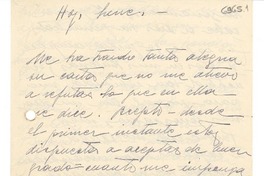 Hoy, lunes,
Me ha traído tanta alegría
su carta que no me atrevo
a refutar lo que en ella
se dice. Acepto — desde
el primer instante estoy
dispuesta a aceptar de buen
grado — cuanto me imponga